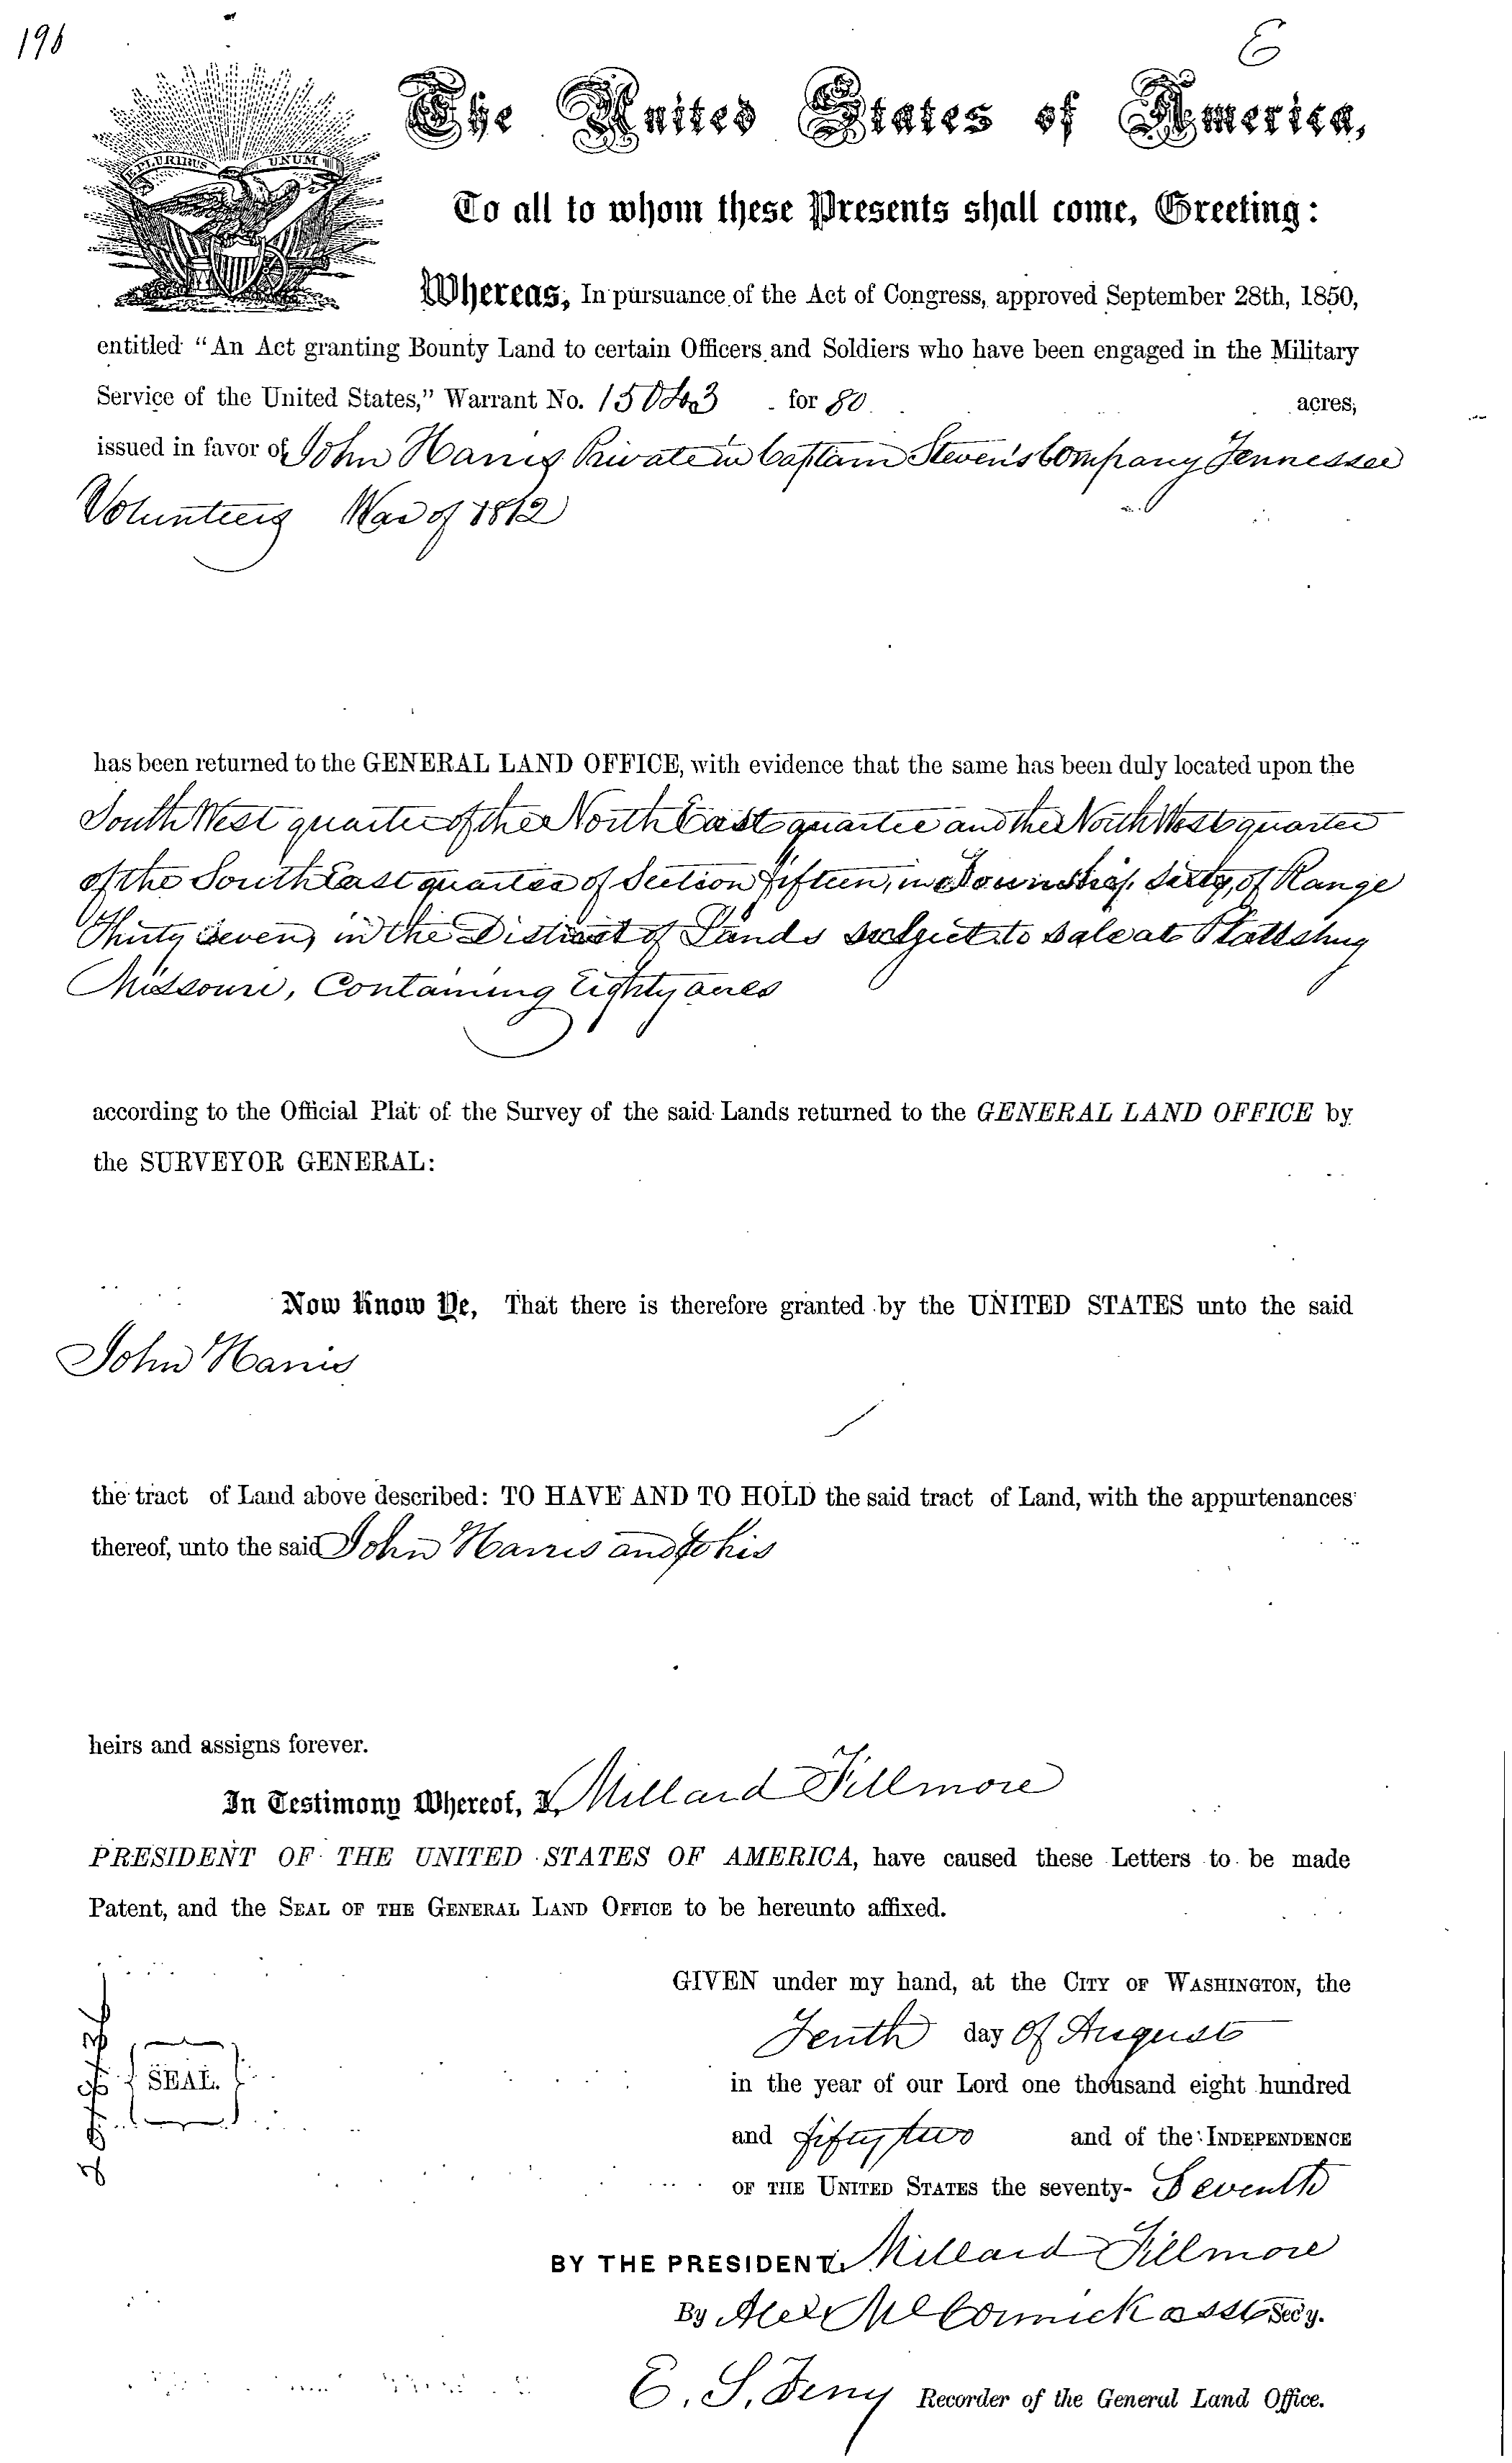 196
E
PLURIBUS UNUM
The United States of America,
To all to whom these Presents shall come, Greeting:
Whereas, In pursuance of the Act of Congress, approved September 28th, 1850,
entitled "An Act granting Bounty Land to certain Officers and Soldiers who have been engaged in the Military
Service of the United States," Warrant No. 15043 for 80 acres,
issued in favor of John Harris Private in Captain Steven's Company Tennessee
Volunteers War of 1812
has been returned to the GENERAL LAND OFFICE, with evidence that the same has been duly located upon the
South West quarter of the North East quarter and the North West quarter
of the South East quarter of Section fifteen, in Township Sixty, of Range
Thirty Seven, in the District of Lands subject to sale at Plattsburg
Missouri, Containing Eighty acres
according to the Official Plat of the Survey of the said Lands returned to the GENERAL LAND OFFICE by
the SURVEYOR GENERAL:
Now Know Ye, That there is therefore granted by the UNITED STATES unto the said
John Harris
the tract of Land above described: TO HAVE AND TO HOLD the said tract of Land, with the appurtenances
thereof, unto the said John Harris and to his
heirs and assigns forever.
In Testimony Whereof, I, Millard Fillmore
PRESIDENT OF THE UNITED STATES OF AMERICA, have caused these Letters to be made
Patent, and the SEAL OF THE GENERAL LAND OFFICE to be hereunto affixed.
GIVEN under my hand, at the CITY OF WASHINGTON, the
Tenth day of August
SEAL.
in the year of our Lord one thousand eight hundred
and fifty two and of the INDEPENDENCE
OF THE UNITED STATES the seventy-Seventh
BY THE PRESIDENT: Millard Fillmore
By Alex McCormick asst Sec'y.
E. S. Terry Recorder of the General Land Office.